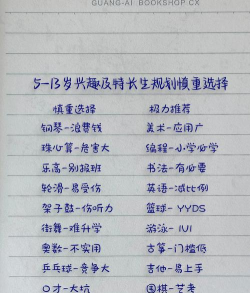 GUANG-AI BOOKSHOP.CX
5-13岁兴趣及特长生规划慎重选择
慎重选择 极力推荐
钢琴-浪费钱 美术-应用广
珠心算-危害大 编程-小学必学
乐高-别报班 书法-有必要
轮滑-易受伤 英语-减比例
架子鼓-伤听力 篮球-YYDS
街舞-难升学 游泳-1V1
奥数-不实用 古筝-门槛低
乒乓球-竞争大 吉他-易上手
口才-大坑 围棋-艺考